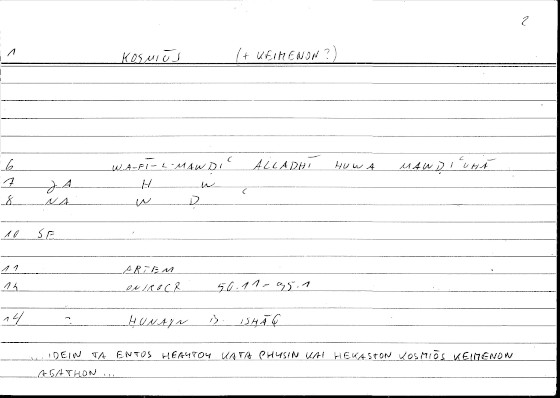 2
1 KOSMIŌS (+ KEIMENON?)
6 WA-FĪ-L-MAWḌIʿ ALLADHĪ HUWA MAWḌIʿUHĀ
7 JA H W
8 NA W Ḍ ʿ
10 SF
11 ARTEM
12 ONIROCR 56.11-95.1
14 = ḤUNAYN B. ISḤĀQ
...IDEIN TA ENTOS HEAUTOU KATA PHYSIN KAI HEKASTON KOSMIŌS KEIMENON
AGATHON...